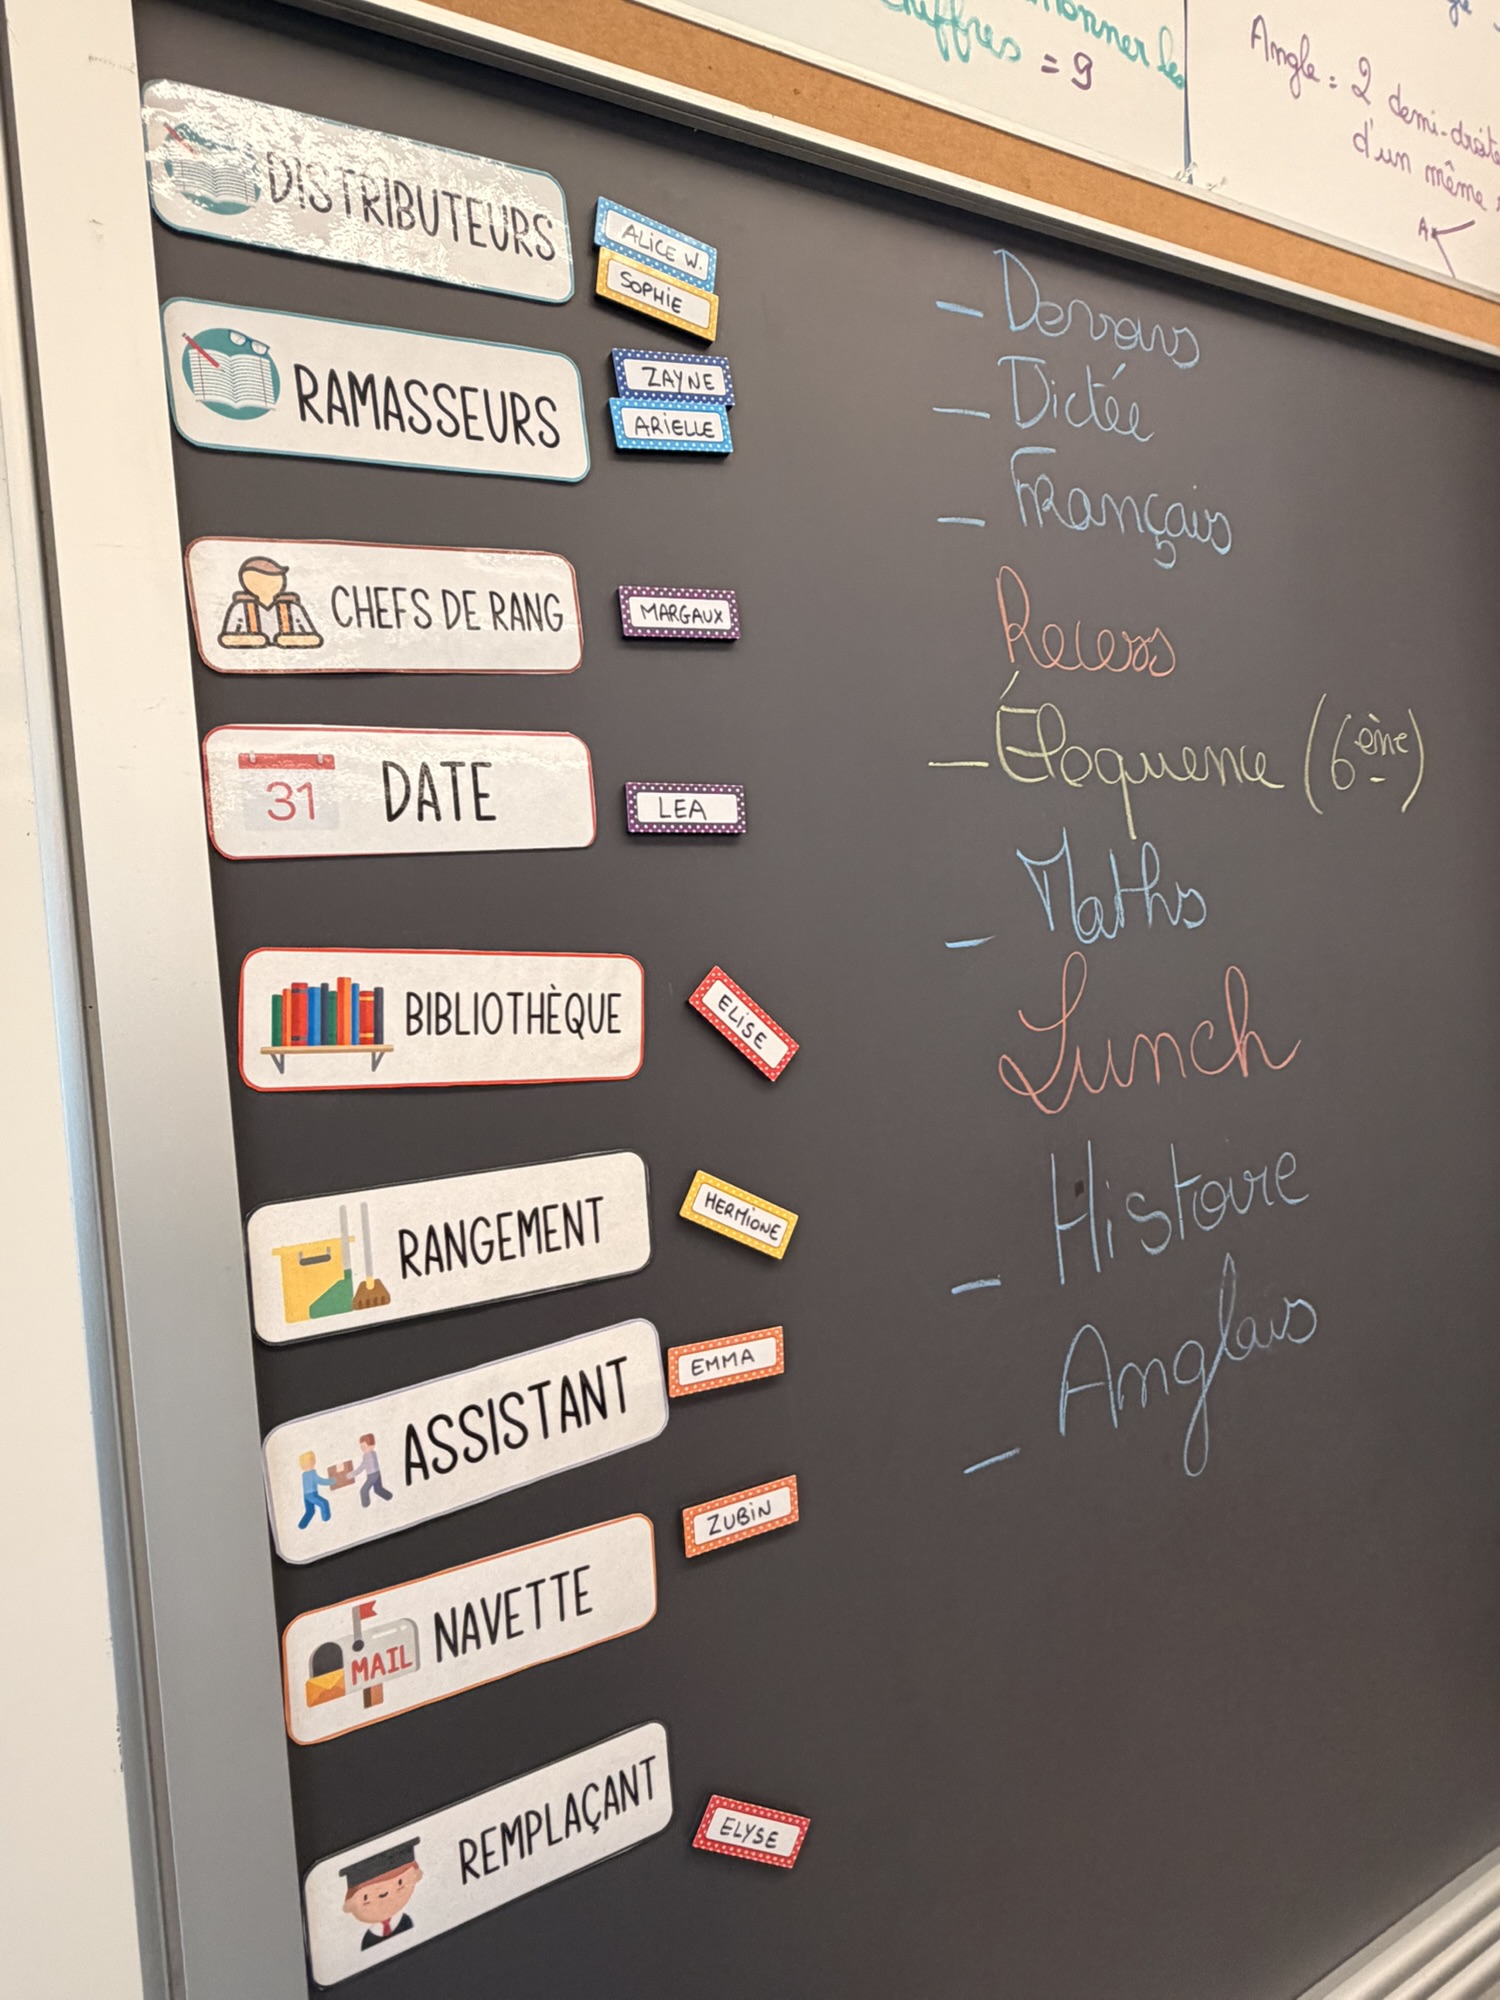 chiffres = 9
Angle = 2 demi-droite
d'un même
A
DISTRIBUTEURS
ALICE W.
SOPHIE
RAMASSEURS
ZAYNE
ARIELLE
CHEFS DE RANG
MARGAUX
31
DATE
LEA
BIBLIOTHÈQUE
ELISE
RANGEMENT
HERMIONE
ASSISTANT
EMMA
MAIL
NAVETTE
ZUBIN
REMPLAÇANT
ELYSE
– Devoirs
– Dictée
– Français
Recess
– Éloquence (6ème)
– Maths
Lunch
– Histoire
– Anglais